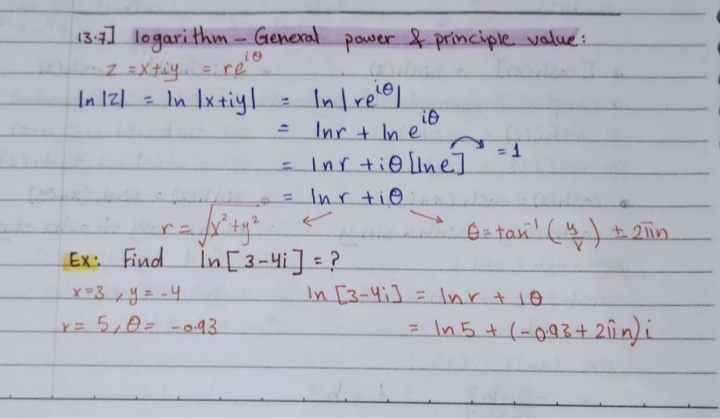 13.7] logarithm – General power & principle value:
z = x+iy = re^iθ
ln |z| = ln |x+iy| = ln |re^iθ|
= ln r + ln e^iθ
= ln r + iθ [ln e] = 1
= ln r + iθ
r = √x²+y² θ = tan⁻¹ (y/x) ± 2πn
Ex: Find ln [3-4i] = ?
x=3, y=-4 ln [3-4i] = ln r + iθ
r = 5, θ = -0.93 = ln 5 + (-0.93 + 2πn) i